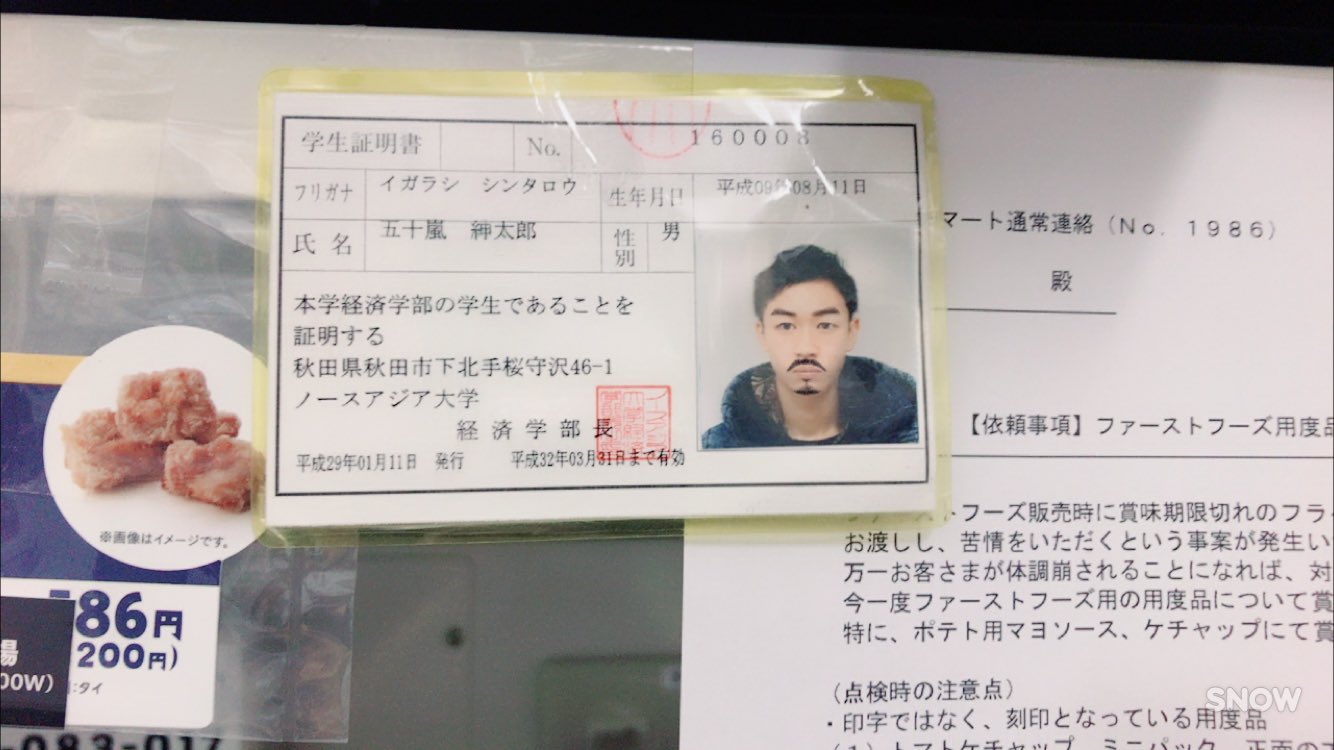 学生証明書
No.
160008
フリガナ
イガラシ シンタロウ
生年月日
平成09年08月11日
氏名
五十嵐 紳太郎
性別
男
本学経済学部の学生であることを
証明する
秋田県秋田市下北手桜守沢46-1
ノースアジア大学
経済学部長
平成29年01月11日 発行 平成32年03月31日まで有効
※画像はイメージです。
86円
200円)
00W)
:タイ
-083-017
マート通常連絡(No. 1986)
殿
【依頼事項】ファーストフーズ用度品
ストフーズ販売時に賞味期限切れのフラ
お渡しし、苦情をいただくという事案が発生い
万一お客さまが体調崩されることになれば、対
今一度ファーストフーズ用の用度品について賞
特に、ポテト用マヨソース、ケチャップにて賞
(点検時の注意点)
・印字ではなく、刻印となっている用度品
(1)トマトケチャップ ミニパック 正面の
SNOW